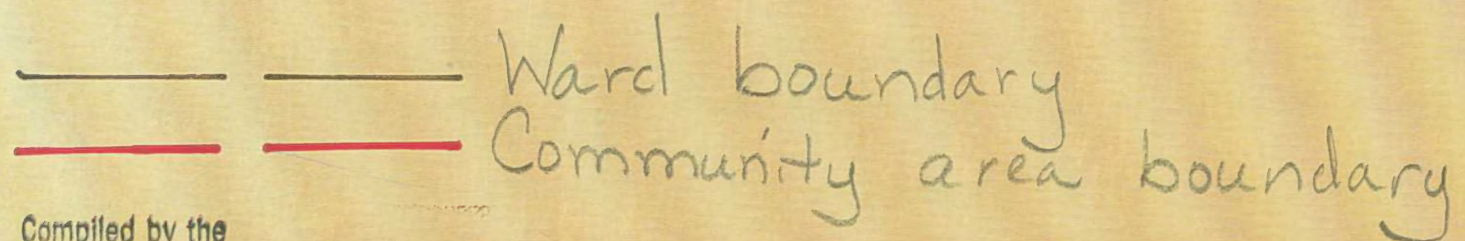 Ward boundary
Community area boundary
Compiled by the